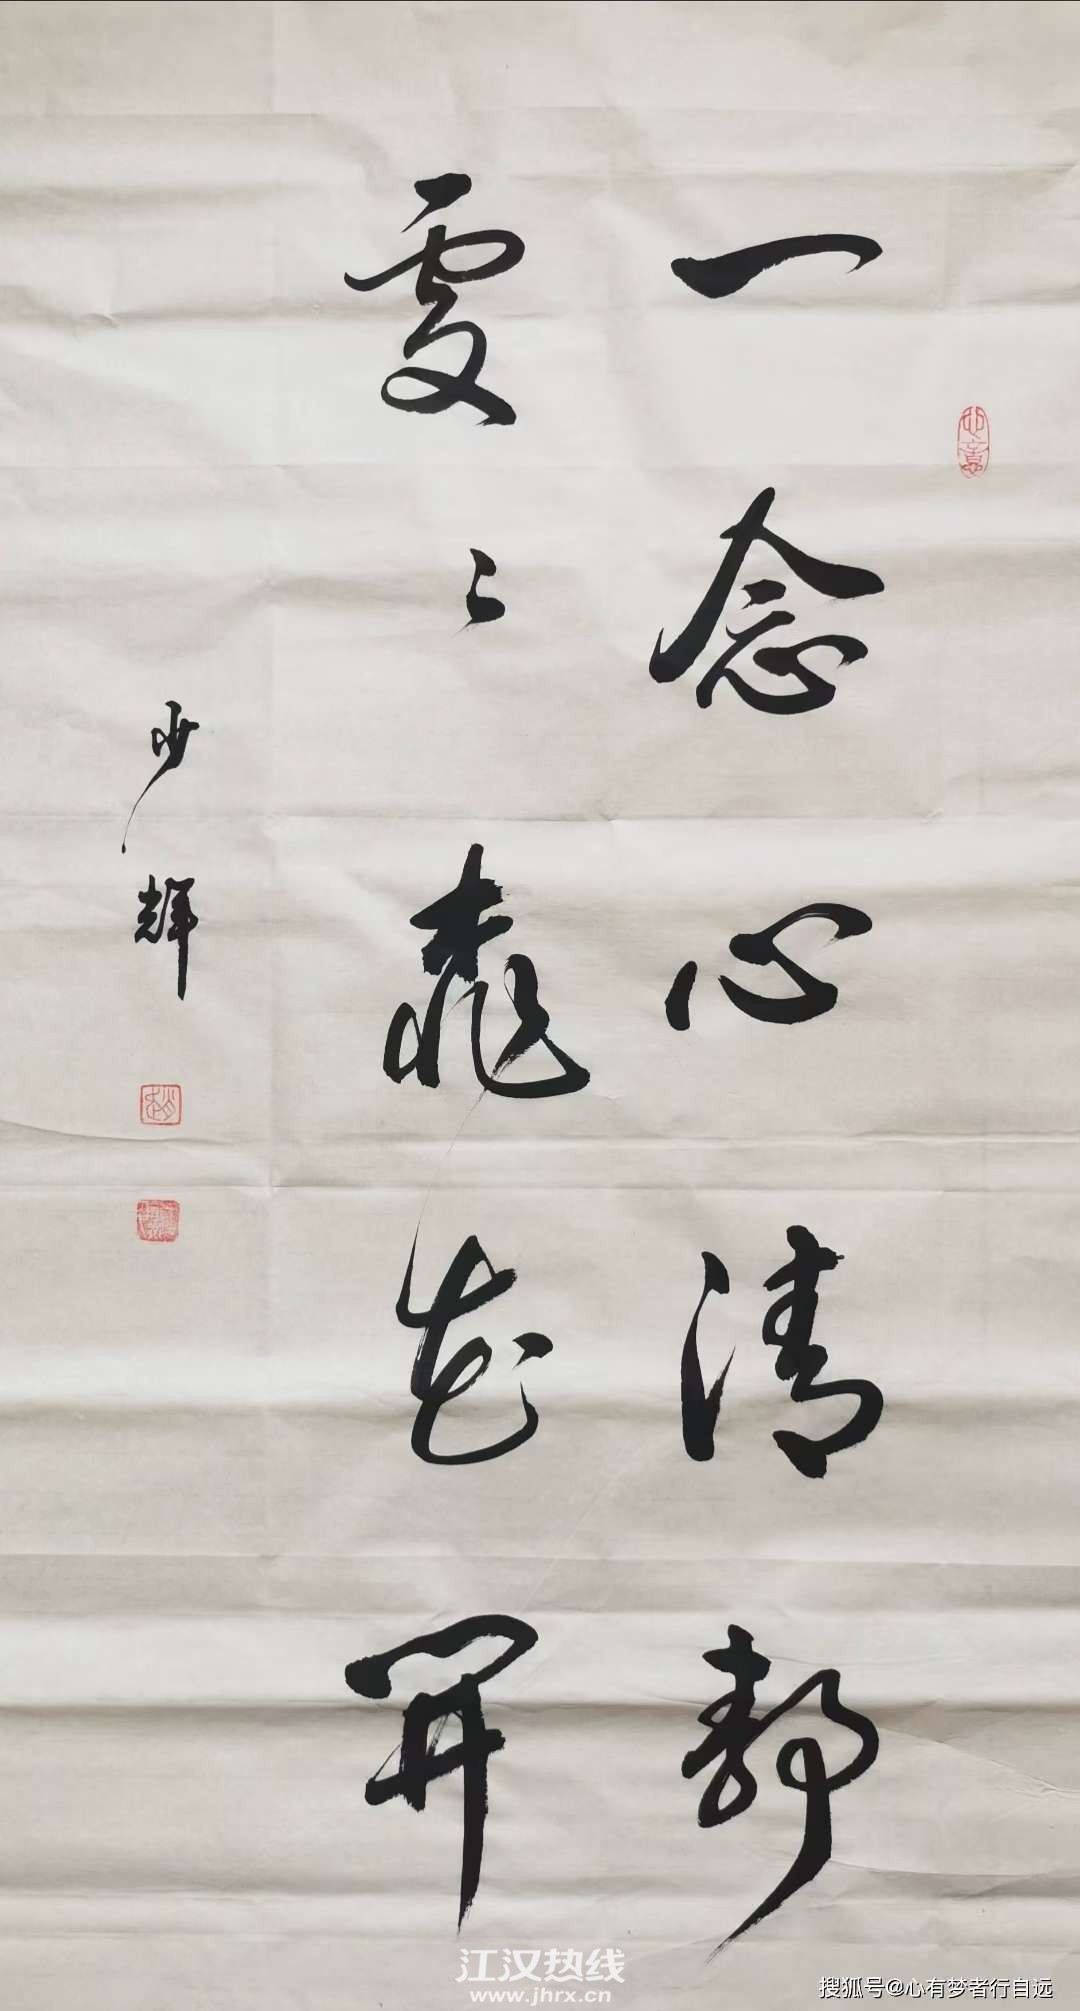 一念心清静
處々桃花開
少輝
如意
江汉热线
www.jhrx.cn
搜狐号@心有梦者行自远